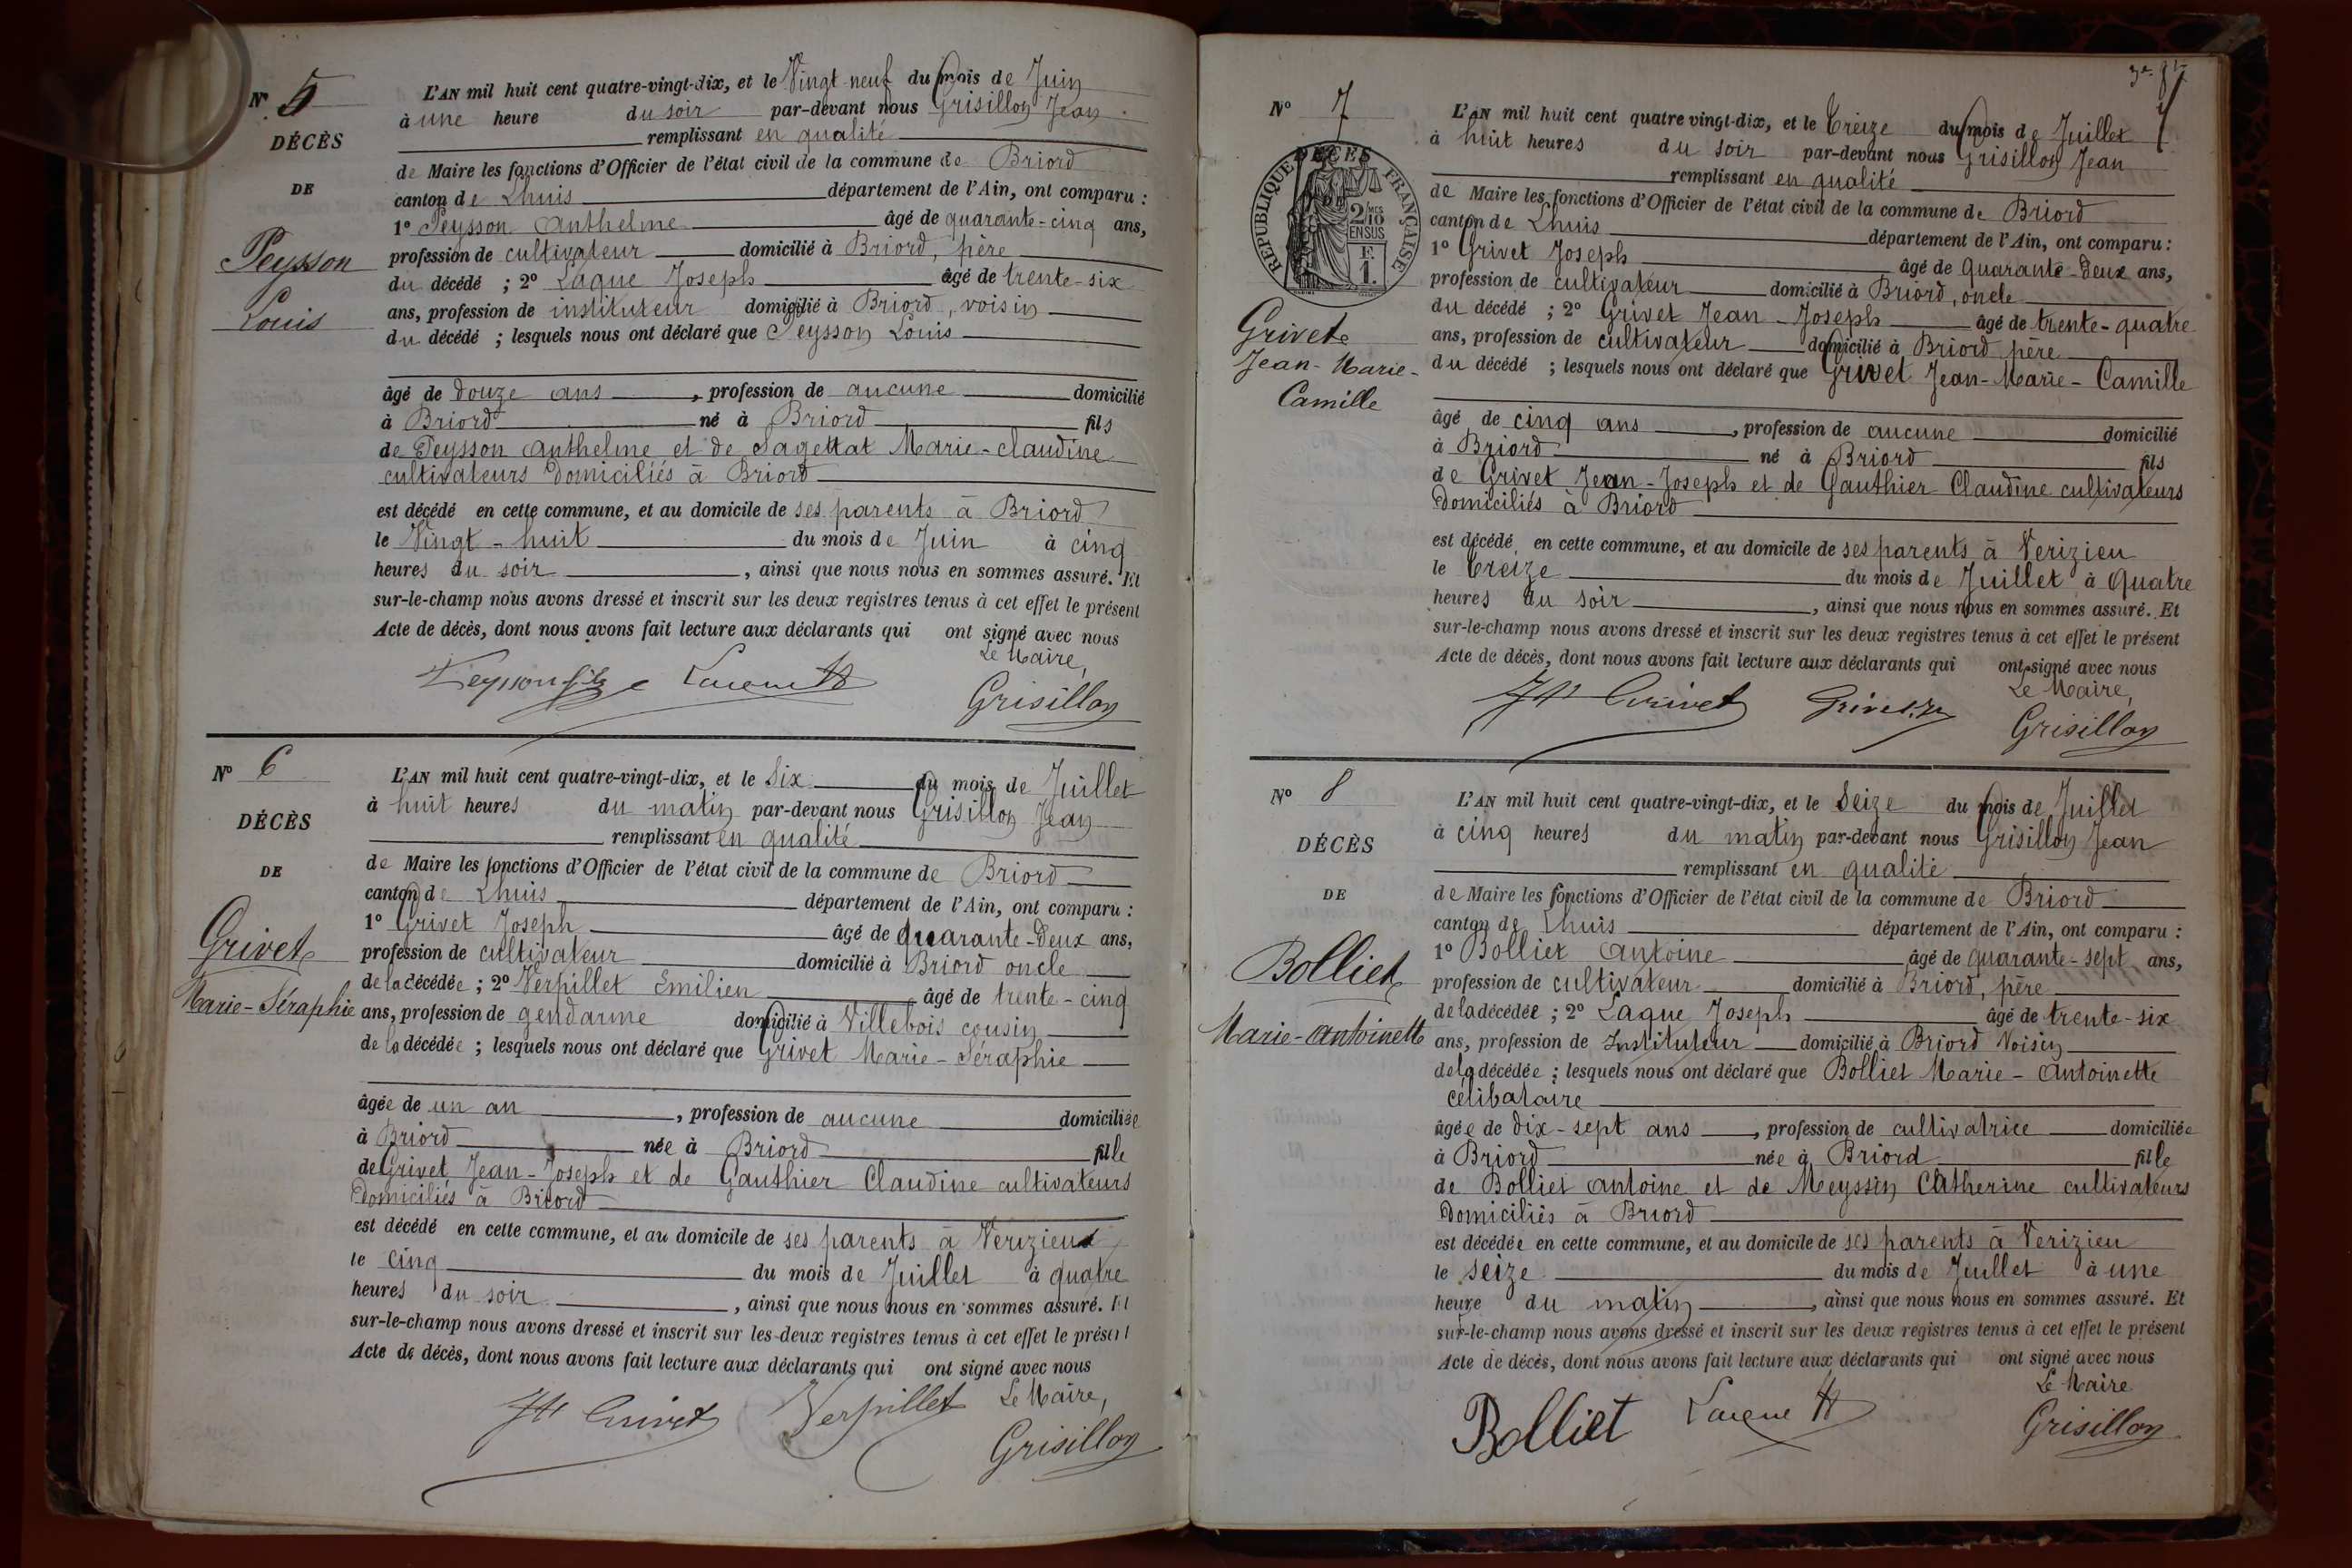 N° 5
DÉCÈS
DE
Peysson
Louis
L'AN mil huit cent quatre-vingt-dix, et le Vingt-neuf du mois de Juin
à une heure du soir par-devant nous Grisillon Jean
remplissant en qualité
de Maire les fonctions d'Officier de l'état civil de la commune de Briord
canton de Lhuis département de l'Ain, ont comparu :
1° Peysson Anthelme âgé de quarante-cinq ans,
profession de cultivateur domicilié à Briord, père
du décédé ; 2° Laque Joseph âgé de trente-six
ans, profession de instituteur domicilié à Briord, voisin
du décédé ; lesquels nous ont déclaré que Peysson Louis
âgé de douze ans, profession de aucune domicilié
à Briord né à Briord fils
de Peysson Anthelme et de Sagettat Marie-Claudine
cultivateurs domiciliés à Briord
est décédé en cette commune, et au domicile de ses parents à Briord
le Vingt-huit du mois de Juin à cinq
heures du soir, ainsi que nous nous en sommes assuré. Et
sur-le-champ nous avons dressé et inscrit sur les deux registres tenus à cet effet le présent
Acte de décès, dont nous avons fait lecture aux déclarants qui ont signé avec nous
Le Maire,
Laque Grisillon
N° 6
DÉCÈS
DE
Grivet
Marie-Séraphie
L'AN mil huit cent quatre-vingt-dix, et le Six du mois de Juillet
à huit heures du matin par-devant nous Grisillon Jean
remplissant en qualité
de Maire les fonctions d'Officier de l'état civil de la commune de Briord
canton de Lhuis département de l'Ain, ont comparu :
1° Grivet Joseph âgé de quarante-deux ans,
profession de cultivateur domicilié à Briord oncle
de la décédée ; 2° Verpillet Emilien âgé de trente-cinq
ans, profession de gendarme domicilié à Villebois cousin
de la décédée ; lesquels nous ont déclaré que Grivet Marie-Séraphie
âgée de un an, profession de aucune domiciliée
à Briord née à Briord fille
de Grivet Jean-Joseph et de Gauthier Claudine cultivateurs
domiciliés à Briord
est décédé en cette commune, et au domicile de ses parents à Verizieu
le cinq du mois de Juillet à quatre
heures du soir, ainsi que nous nous en sommes assuré. Et
sur-le-champ nous avons dressé et inscrit sur les deux registres tenus à cet effet le présent
Acte de décès, dont nous avons fait lecture aux déclarants qui ont signé avec nous
Le Maire,
Jh Grivet Verpillet Grisillon
N° 7
RÉPUBLIQUE FRANÇAISE
DÉCÈS
2/10
EN SUS
F.
1.
Grivet
Jean-Marie-
Camille
L'AN mil huit cent quatre vingt-dix, et le treize du mois de Juillet
à huit heures du soir par-devant nous Grisillon Jean
remplissant en qualité
de Maire les fonctions d'Officier de l'état civil de la commune de Briord
canton de Lhuis département de l'Ain, ont comparu :
1° Grivet Joseph âgé de quarante-deux ans,
profession de cultivateur domicilié à Briord, oncle
du décédé ; 2° Grivet Jean-Joseph âgé de trente-quatre
ans, profession de cultivateur domicilié à Briord père
du décédé ; lesquels nous ont déclaré que Grivet Jean-Marie-Camille
âgé de cinq ans, profession de aucune domicilié
à Briord né à Briord fils
de Grivet Jean-Joseph et de Gauthier Claudine cultivateurs
domiciliés à Briord
est décédé en cette commune, et au domicile de ses parents à Verizieu
le treize du mois de Juillet à quatre
heures du soir, ainsi que nous nous en sommes assuré. Et
sur-le-champ nous avons dressé et inscrit sur les deux registres tenus à cet effet le présent
Acte de décès, dont nous avons fait lecture aux déclarants qui ont signé avec nous
Le Maire,
Jh Grivet Grivet Grisillon
N° 8
DÉCÈS
DE
Bolliet
Marie-Antoinette
L'AN mil huit cent quatre-vingt-dix, et le Seize du mois de Juillet
à cinq heures du matin par-devant nous Grisillon Jean
remplissant en qualité
de Maire les fonctions d'Officier de l'état civil de la commune de Briord
canton de Lhuis département de l'Ain, ont comparu :
1° Bolliet Antoine âgé de quarante-sept ans,
profession de cultivateur domicilié à Briord, père
de la décédée ; 2° Laque Joseph âgé de trente-six
ans, profession de Instituteur domicilié à Briord Voisin
de la décédée ; lesquels nous ont déclaré que Bolliet Marie-Antoinette
célibataire
âgée de dix-sept ans, profession de cultivatrice domiciliée
à Briord née à Briord fille
de Bolliet Antoine et de Meyssin Catherine cultivateurs
domiciliés à Briord
est décédée en cette commune, et au domicile de ses parents à Verizieu
le seize du mois de Juillet à une
heure du matin, ainsi que nous nous en sommes assuré. Et
sur-le-champ nous avons dressé et inscrit sur les deux registres tenus à cet effet le présent
Acte de décès, dont nous avons fait lecture aux déclarants qui ont signé avec nous
Le Maire
Bolliet Laque Jh Grisillon